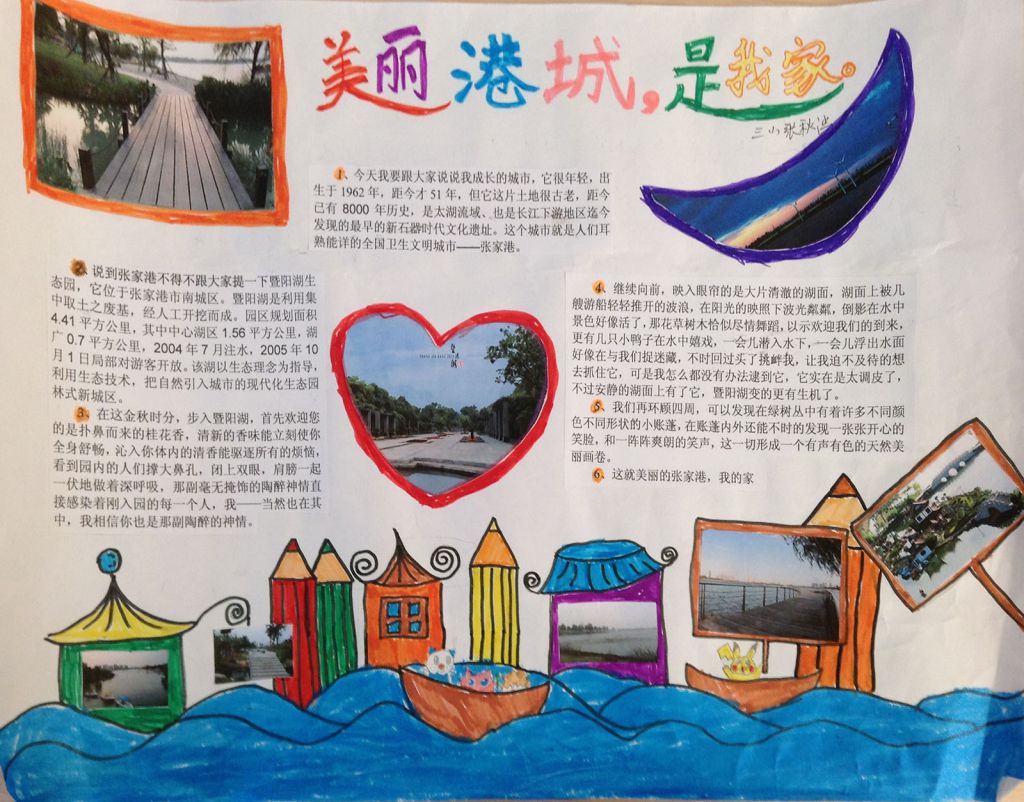 美丽港城，是我家。
三山张秋
1、今天我要跟大家说说我成长的城市，它很年轻，出
生于 1962 年，距今才 51 年，但它这片土地很古老，距今
已有 8000 年历史，是太湖流域、也是长江下游地区迄今
发现的最早的新石器时代文化遗址。这个城市就是人们耳
熟能详的全国卫生文明城市——张家港。
2、说到张家港不得不跟大家提一下暨阳湖生
态园，它位于张家港市南城区。暨阳湖是利用集
中取土之废基，经人工开挖而成。园区规划面积
4.41 平方公里，其中中心湖区 1.56 平方公里，湖
广 0.7 平方公里，2004 年 7 月注水，2005 年 10
月 1 日局部对游客开放。该湖以生态理念为指导，
利用生态技术，把自然引入城市的现代化生态园
林式新城区。
3、在这金秋时分，步入暨阳湖，首先欢迎您
的是扑鼻而来的桂花香，清新的香味能立刻使你
全身舒畅，沁入你体内的清香能驱逐所有的烦恼，
看到园内的人们撑大鼻孔，闭上双眼，肩膀一起
一伏地做着深呼吸，那副毫无掩饰的陶醉神情直
接感染着刚入园的每一个人，我——当然也在其
中，我相信你也是那副陶醉的神情。
4、继续向前，映入眼帘的是大片清澈的湖面，湖面上被几
艘游船轻轻推开的波浪，在阳光的映照下波光粼粼，倒影在水中
景色好像活了，那花草树木恰似尽情舞蹈，以示欢迎我们的到来，
更有几只小鸭子在水中嬉戏，一会儿潜入水下，一会儿浮出水面
好像在与我们捉迷藏，不时回过头了挑衅我，让我迫不及待的想
去抓住它，可是我怎么都没有办法逮到它，它实在是太调皮了，
不过安静的湖面上有了它，暨阳湖变的更有生机了。
5、我们再环顾四周，可以发现在绿树丛中有着许多不同颜
色不同形状的小账篷，在账篷内外还能不时的发现一张张开心的
笑脸，和一阵阵爽朗的笑声，这一切形成一个有声有色的天然美
丽画卷。
6、这就美丽的张家港，我的家